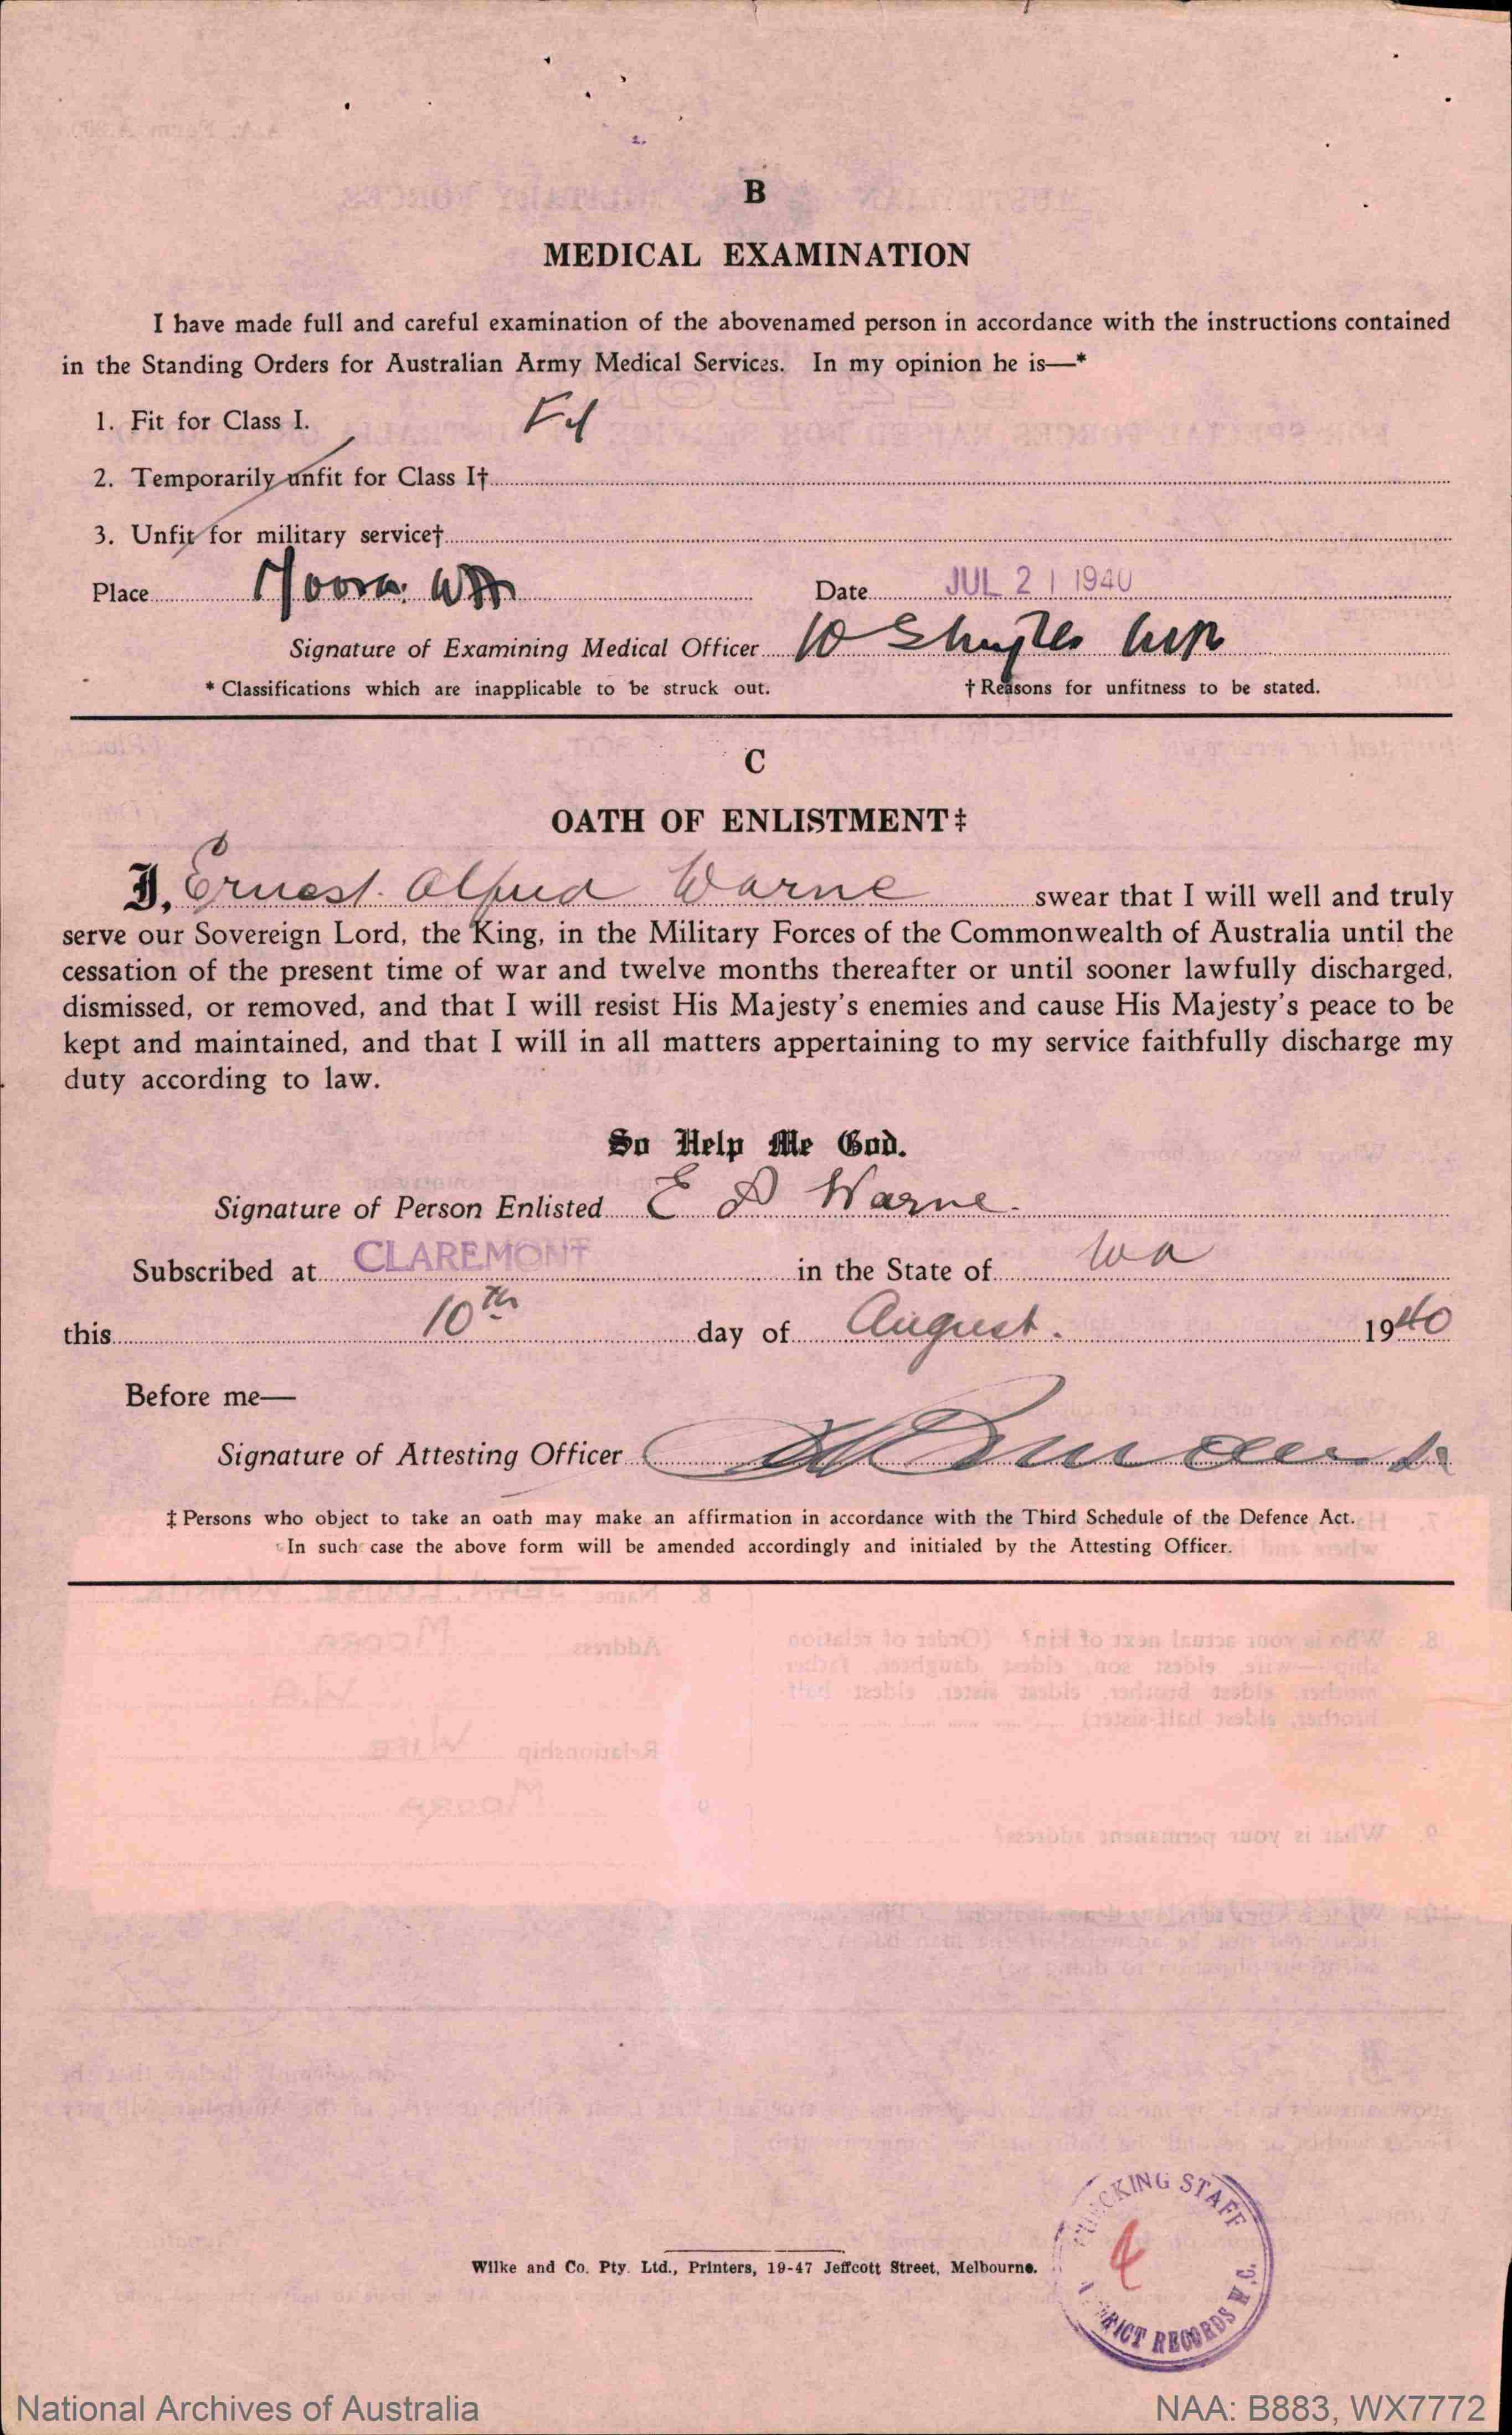 B
MEDICAL EXAMINATION
I have made full and careful examination of the abovenamed person in accordance with the instructions contained
in the Standing Orders for Australian Army Medical Services. In my opinion he is—*
1. Fit for Class I. Fit
2. Temporarily unfit for Class I†
3. Unfit for military service†
Place Moora WA Date JUL 21 1940
Signature of Examining Medical Officer
* Classifications which are inapplicable to be struck out. † Reasons for unfitness to be stated.
C
OATH OF ENLISTMENT‡
I, Ernest Alfred Warne swear that I will well and truly
serve our Sovereign Lord, the King, in the Military Forces of the Commonwealth of Australia until the
cessation of the present time of war and twelve months thereafter or until sooner lawfully discharged,
dismissed, or removed, and that I will resist His Majesty's enemies and cause His Majesty's peace to be
kept and maintained, and that I will in all matters appertaining to my service faithfully discharge my
duty according to law.
So Help Me God.
Signature of Person Enlisted E A Warne.
Subscribed at CLAREMONT in the State of WA
this 10th day of August. 1940
Before me—
Signature of Attesting Officer
‡ Persons who object to take an oath may make an affirmation in accordance with the Third Schedule of the Defence Act.
In such case the above form will be amended accordingly and initialed by the Attesting Officer.
Wilke and Co. Pty. Ltd., Printers, 19-47 Jeffcott Street, Melbourne.
STAFF
4
RECORDS
National Archives of Australia NAA: B883, WX7772